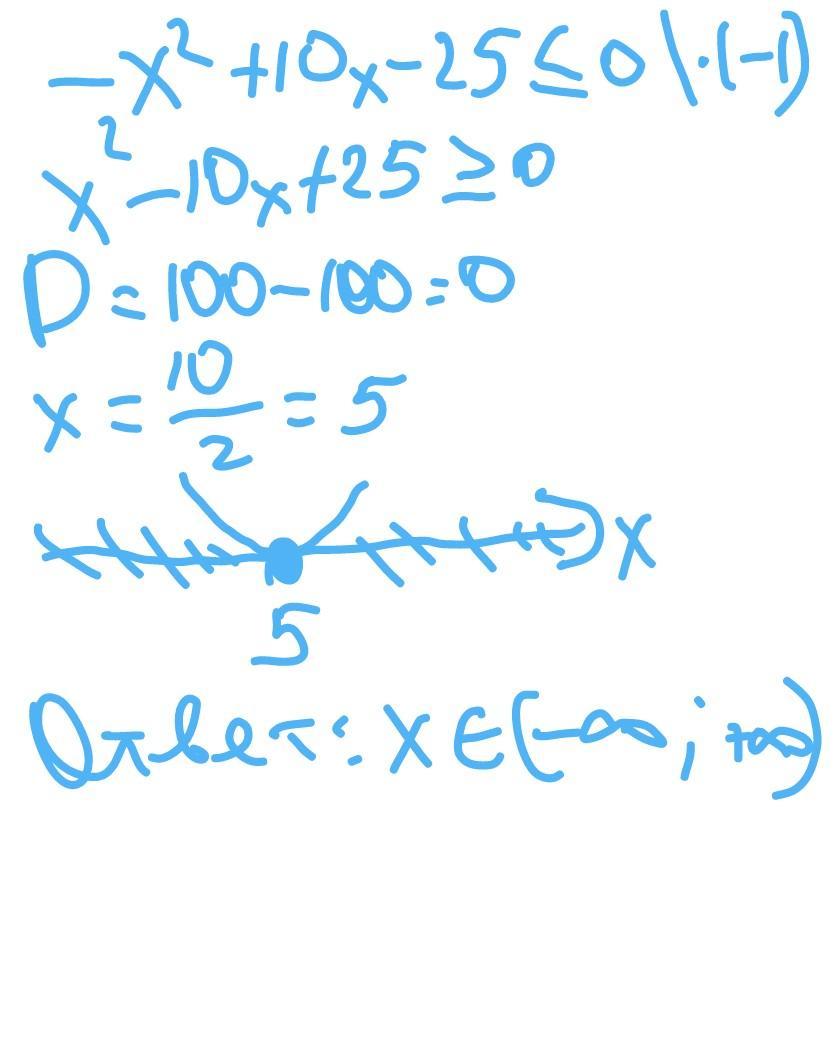 -x² + 10x - 25 ≤ 0 | · (-1)
x² - 10x + 25 ≥ 0
D = 100 - 100 = 0
x = 10/2 = 5
x
5
Ответ: x ∈ (-∞; +∞)